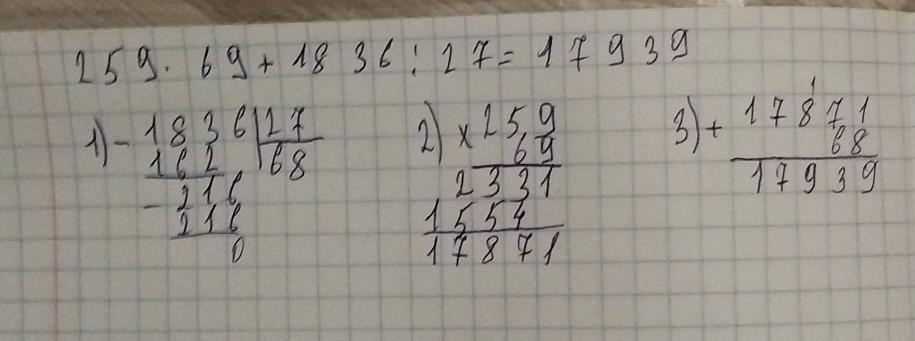 259 · 69 + 1836 : 27 = 17939
1) - 1836 | 27
162 | 68
- 216
216
0
2) × 259
69
2331
1554
17871
3) + 17871
68
17939